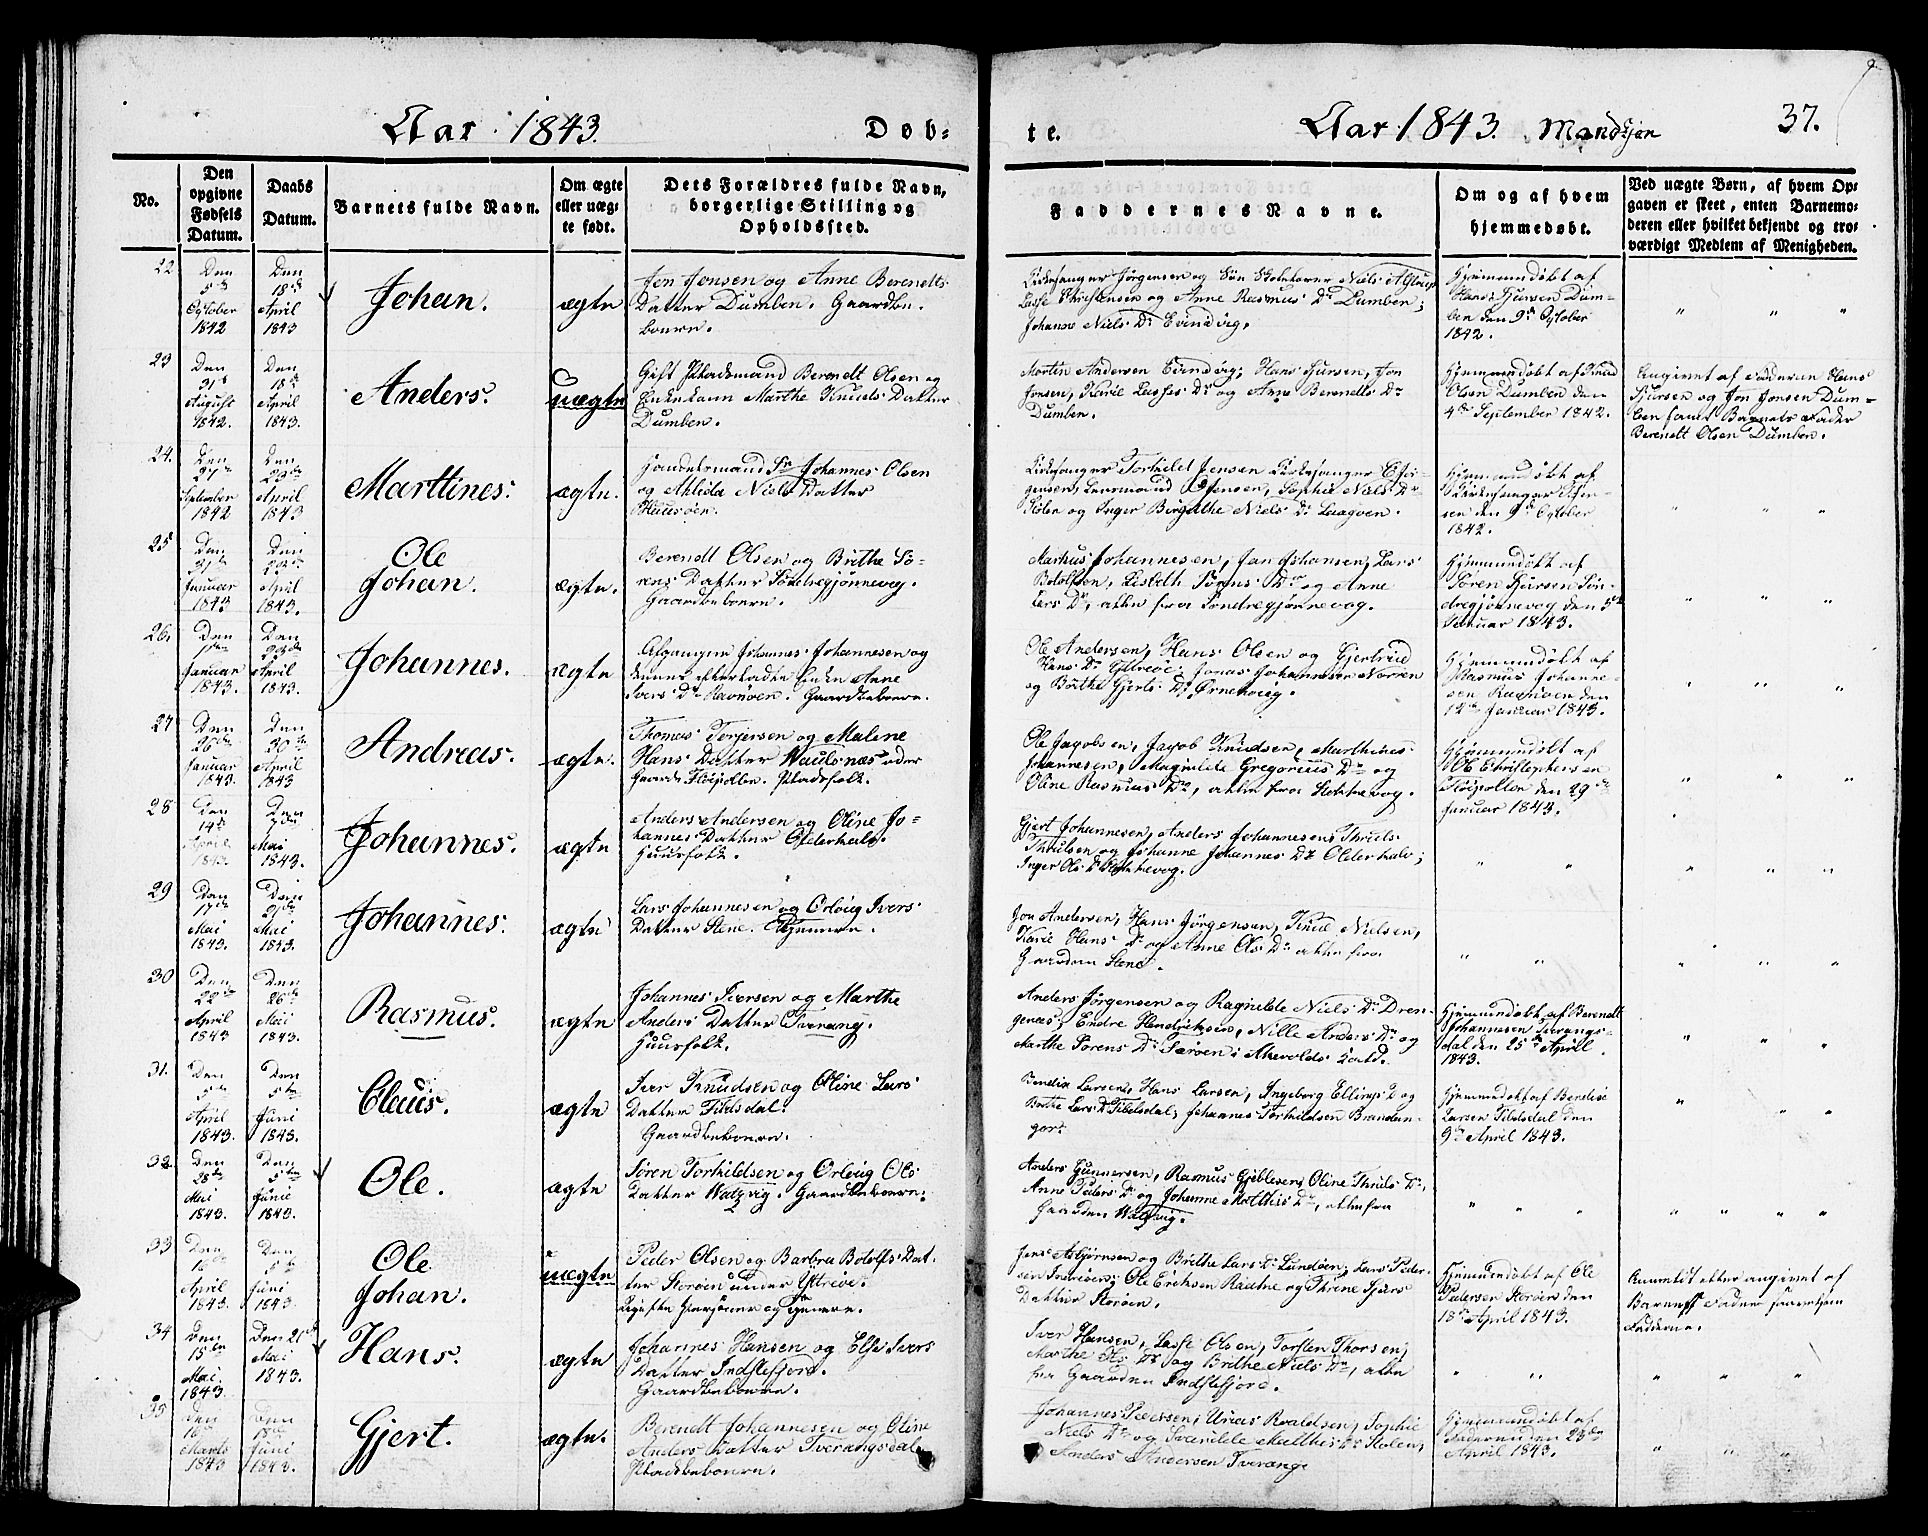 Aar 1843.
Døb=
te.
Aar 1843. Mandkjøn
37.
No.
Den
opgivne
Fødsels
Datum.
Daabs
Datum.
Barnets fulde Navn.
Om ægte
eller uæg=
te født.
Dets Forældres fulde Navn,
borgerlige Stilling og
Opholdssted.
Faddernes Navne.
Om og af hvem
hjemmedøbt.
Ved uægte Børn, af hvem Op=
gaven er skeet, enten Barnemo=
deren eller hvilket bekjendt og tro=
værdigt Medlem af Menigheden.
22
Den
5te
October
1842
Den
18de
April
1843
Johan.
ægte
Jon Jonsen og Anne Berendts
Datter Dumben. Gaardbe-
boere.
Kirkesanger Jørgensen og Søn Skoleholder Niels
Lasse Christensen og Anne Rasmus Dr Dumben;
Johanne Niels Dr Evindvig.
Hjemmedøbt af
Hans Tjursen Dum-
ben den 9de October
1842.
23
Den
31te
August
1842.
Den
18de
April
1843.
Anders.
uægte
Gift Pladsmand Berendt Olsen og
Enkekone Marthe Knuds Datter
Dumben.
Morten Andersen Evindvig; Hans Tjursen, Jon
Jonsen, Kari Lasses Dr og Anne Berendts Dr
Dumben.
Hjemmedøbt af Knud
Olsen Dumben den
4de September 1842.
Angivet af Faderen Hans
Tjursen og Jon Jonsen Dum-
ben samt Barnets Fader
Berendt Olsen Dumben.
24.
Den
27de
September
1842
Den
23de
April
1843
Marttines.
ægte.
Handelsmand Sr Johannes Olsen
og Niels Datter
Kirkesanger Torkild Jensen Kirkesanger
gensen, Sophie Niels Dr
Stolen og Inger Birgitthe Niels Dr
Hjemmedøbt af
Kirkesanger
sen den 9de October
1842.
25
Den
Januar
1843
Den
23de
April
1843.
Ole
Johan.
ægte.
Berendt Olsen og Brithe Sø-
rens Datter Søndregjønnevog.
Gaardbeboere.
Markus Johannesen, Jan Johansen, Lars
Botolfsen, Lisbeth Sørens Dr og Anne
Lers Dr, alle fra Søndregjønnevog.
Hjemmedøbt af
Søren Tjursen Søn-
dregjønnevog den 5te
Februar 1843.
26.
Den
1ste
Januar
1843.
Den
23de
April
1843.
Johannes.
ægte
Afgangne Johannes Johannesen og
dennes efterladte Enke Anne
Ivers Dr Ravnøen. Gaardbeboere.
Ole Andersen, Hans Olsen og Gjertrud
Hans Dr Yttreøe; Jonas Johannesen Norren
og Brithe Gjerts Dr Ørnehvig.
Hjemmedøbt af
Rasmus Johanne-
sen Ravnøen den
12te Januar 1843.
27
Den
26de
Januar
1843.
Den
30te
April
1843
Andreas.
ægte.
Thomas Torgersen og Malene
Hans Datter Waulsnæs under
Gaard Fløypollen. Pladsfolk.
Ole Jacobsen, Jacob Knudsen, Marthines
Johannesen, Magnilde Gregorius Dr og
Oline Rasmus Dr, alle fra
Hjemmedøbt af
Ole Christophersen
Fløipollen den 29de
Januar 1843.
28
Den
14de
April
1843.
Den
7de
Mai
1843.
Johannes.
ægte
Anders Andersen og Oline Jo-
hannes Datter Olderhalv.
Huusfolk.
Gjert Johannesen, Anders Johannesen, Thruls
Thrulsen og Johanne Johannes Dr Olderhalv;
Inger Ols Dr
29
Den
17de
Mai
1843.
Den
21de
Mai
1843.
Johannes.
ægte
Lars Johannesen og Orlöug Ivers
Datter Stene.
Jon Andersen, Hans Jørgensen, Knud Nielsen,
Kari Hans Dr og Anne Ols Dr alle fra
Gaarden Stene.
30
Den
22de
April
1843
Den
26de
Mai
1843.
Rasmus.
ægte
Johannes Iversen og Marthe
Anders Datter Tverang.
Huusfolk.
Anders Jørgensen og Ragnilde Niels Dr Dren-
genæs; Endre Hendriksen, Nille Anders Dr og
Marthe Sørens Dr
Hjemmedøbt af Berendt
Johannesen Tverangs-
dal den 25de April
1843.
31.
Den
5te
April
1843.
Den
5te
Juni
1843.
Claus.
ægte
Iver Knudsen og Oline Lars
Datter Tiklsdal.
Gaardbeboere.
Bendix Larsen, Hans Larsen, Ingeborg Ellings Dr og
Brithe Lars Dr Tiklsdal; Johannes Torkildsen Branden-
gort
Hjemmedøbt af Bendix
Larsen Tiklsdal den
9de April 1843.
32.
Den
28de
Mai
1843.
Den
5te
Juni
1843.
Ole.
ægte
Søren Torkildsen og Orloug Ols
Datter Watzvig. Gaardbeboere.
Anders Gunnersen, Rasmus Gjeblesen, Oline Thruls Dr,
Anne Peders Dr og Johanne Matthis Dr, alle fra
Gaarden Watzvig.
33
Den
16de
April
1843.
Den
5te
Juni
1843.
Ole
Johan.
uægte
Peder Olsen og Barbra Botolfs Dat-
ter Storøen under Yttreøe.
Jens Asbjørnsen og Brithe Lars Dr Lundøen; Lars Peder-
sen Iversøen; Ole Erichsen Rauthe og Thrine Tjøs
Datter Storøen.
Hjemmedøbt af Ole
Pedersen Storøen den
18de April 1843.
Anmeldt eller angivet af
Barnets Fader saavelsom
Fadderne.
34
Den
15de
Mai
1843.
Den 21de
Mai
1843.
Hans.
ægte
Johannes Hansen og Else Ivers
Datter Indslefjord.
Gaardbeboere.
Iver Hansen, Lasse Olsen, Torsten Thorsen,
Marthe Ols Dr og Brithe Niels Dr, alle
fra Gaarden Indslefjord.
35
Den
16de
Marts
1843
Den
18de
Juni
1843.
Gjert.
ægte.
Berendt Johannesen og Oline
Anders Datter Tverangsdal.
Pladsbeboere.
Johannes Pedersen, Urias Roaldsen, Sophie
Niels Dr og Svanilde Matthis Dr Stolen,
Anders Andersen Tverange
Hjemmedøbt af
Faderen den 23de
April 1843.